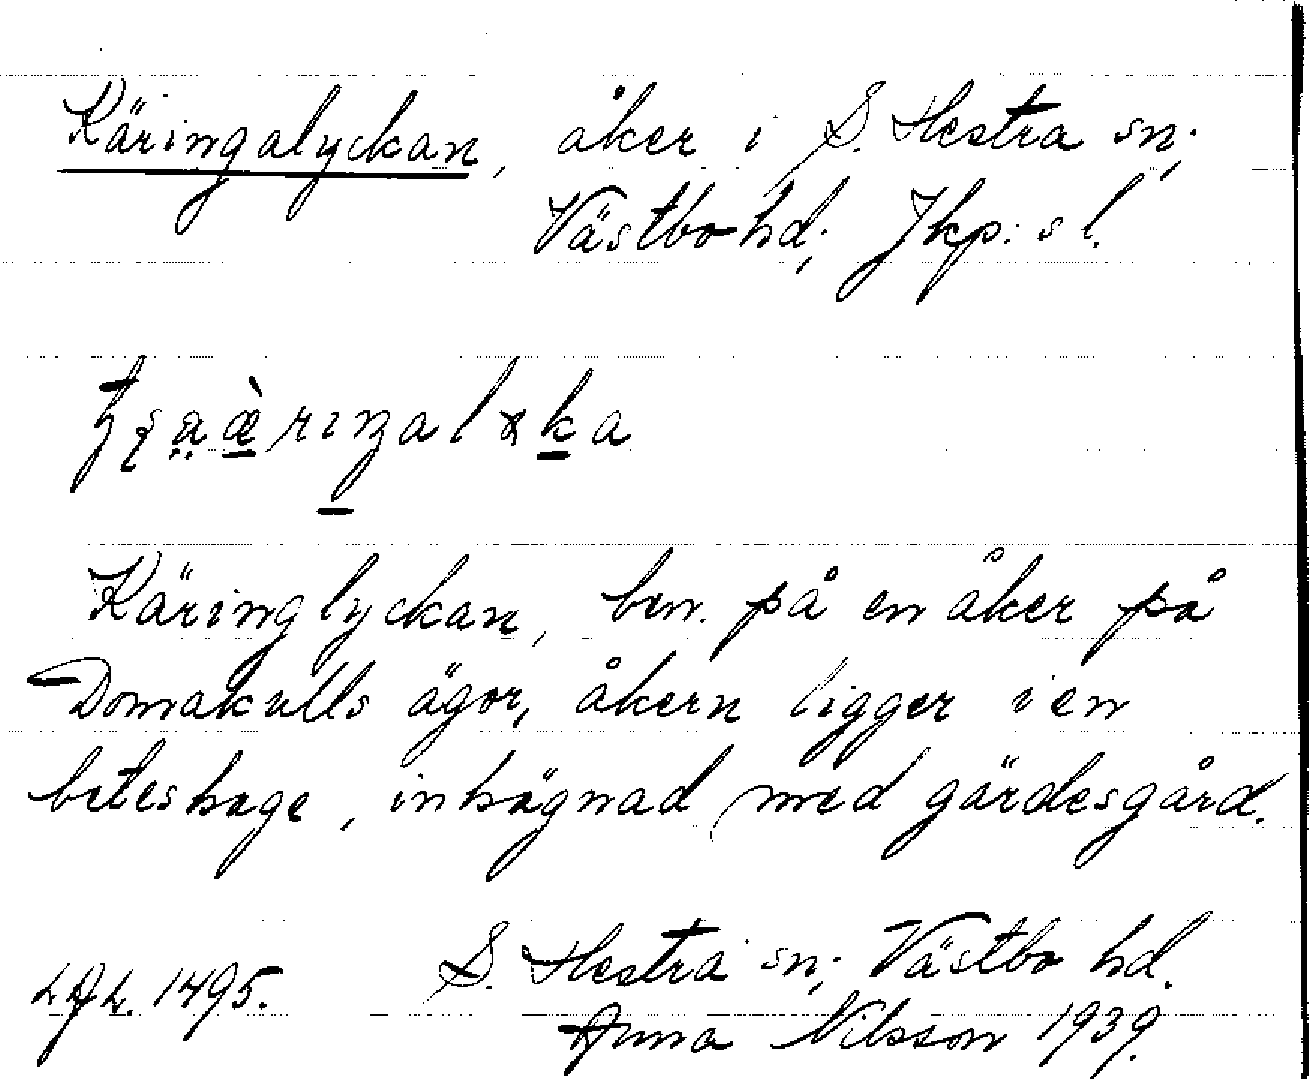 Käringalyckan, åker i S. Hestra sn;
Västbo hd; Jkp:s l.
Käringlyckan, ben. på en åker på
Domakulls ägor, åkern ligger i en
beteshage, inhägnad med gärdesgård.
S. Hestra sn; Västbo hd.
1495.
Anna Nilsson 1939.